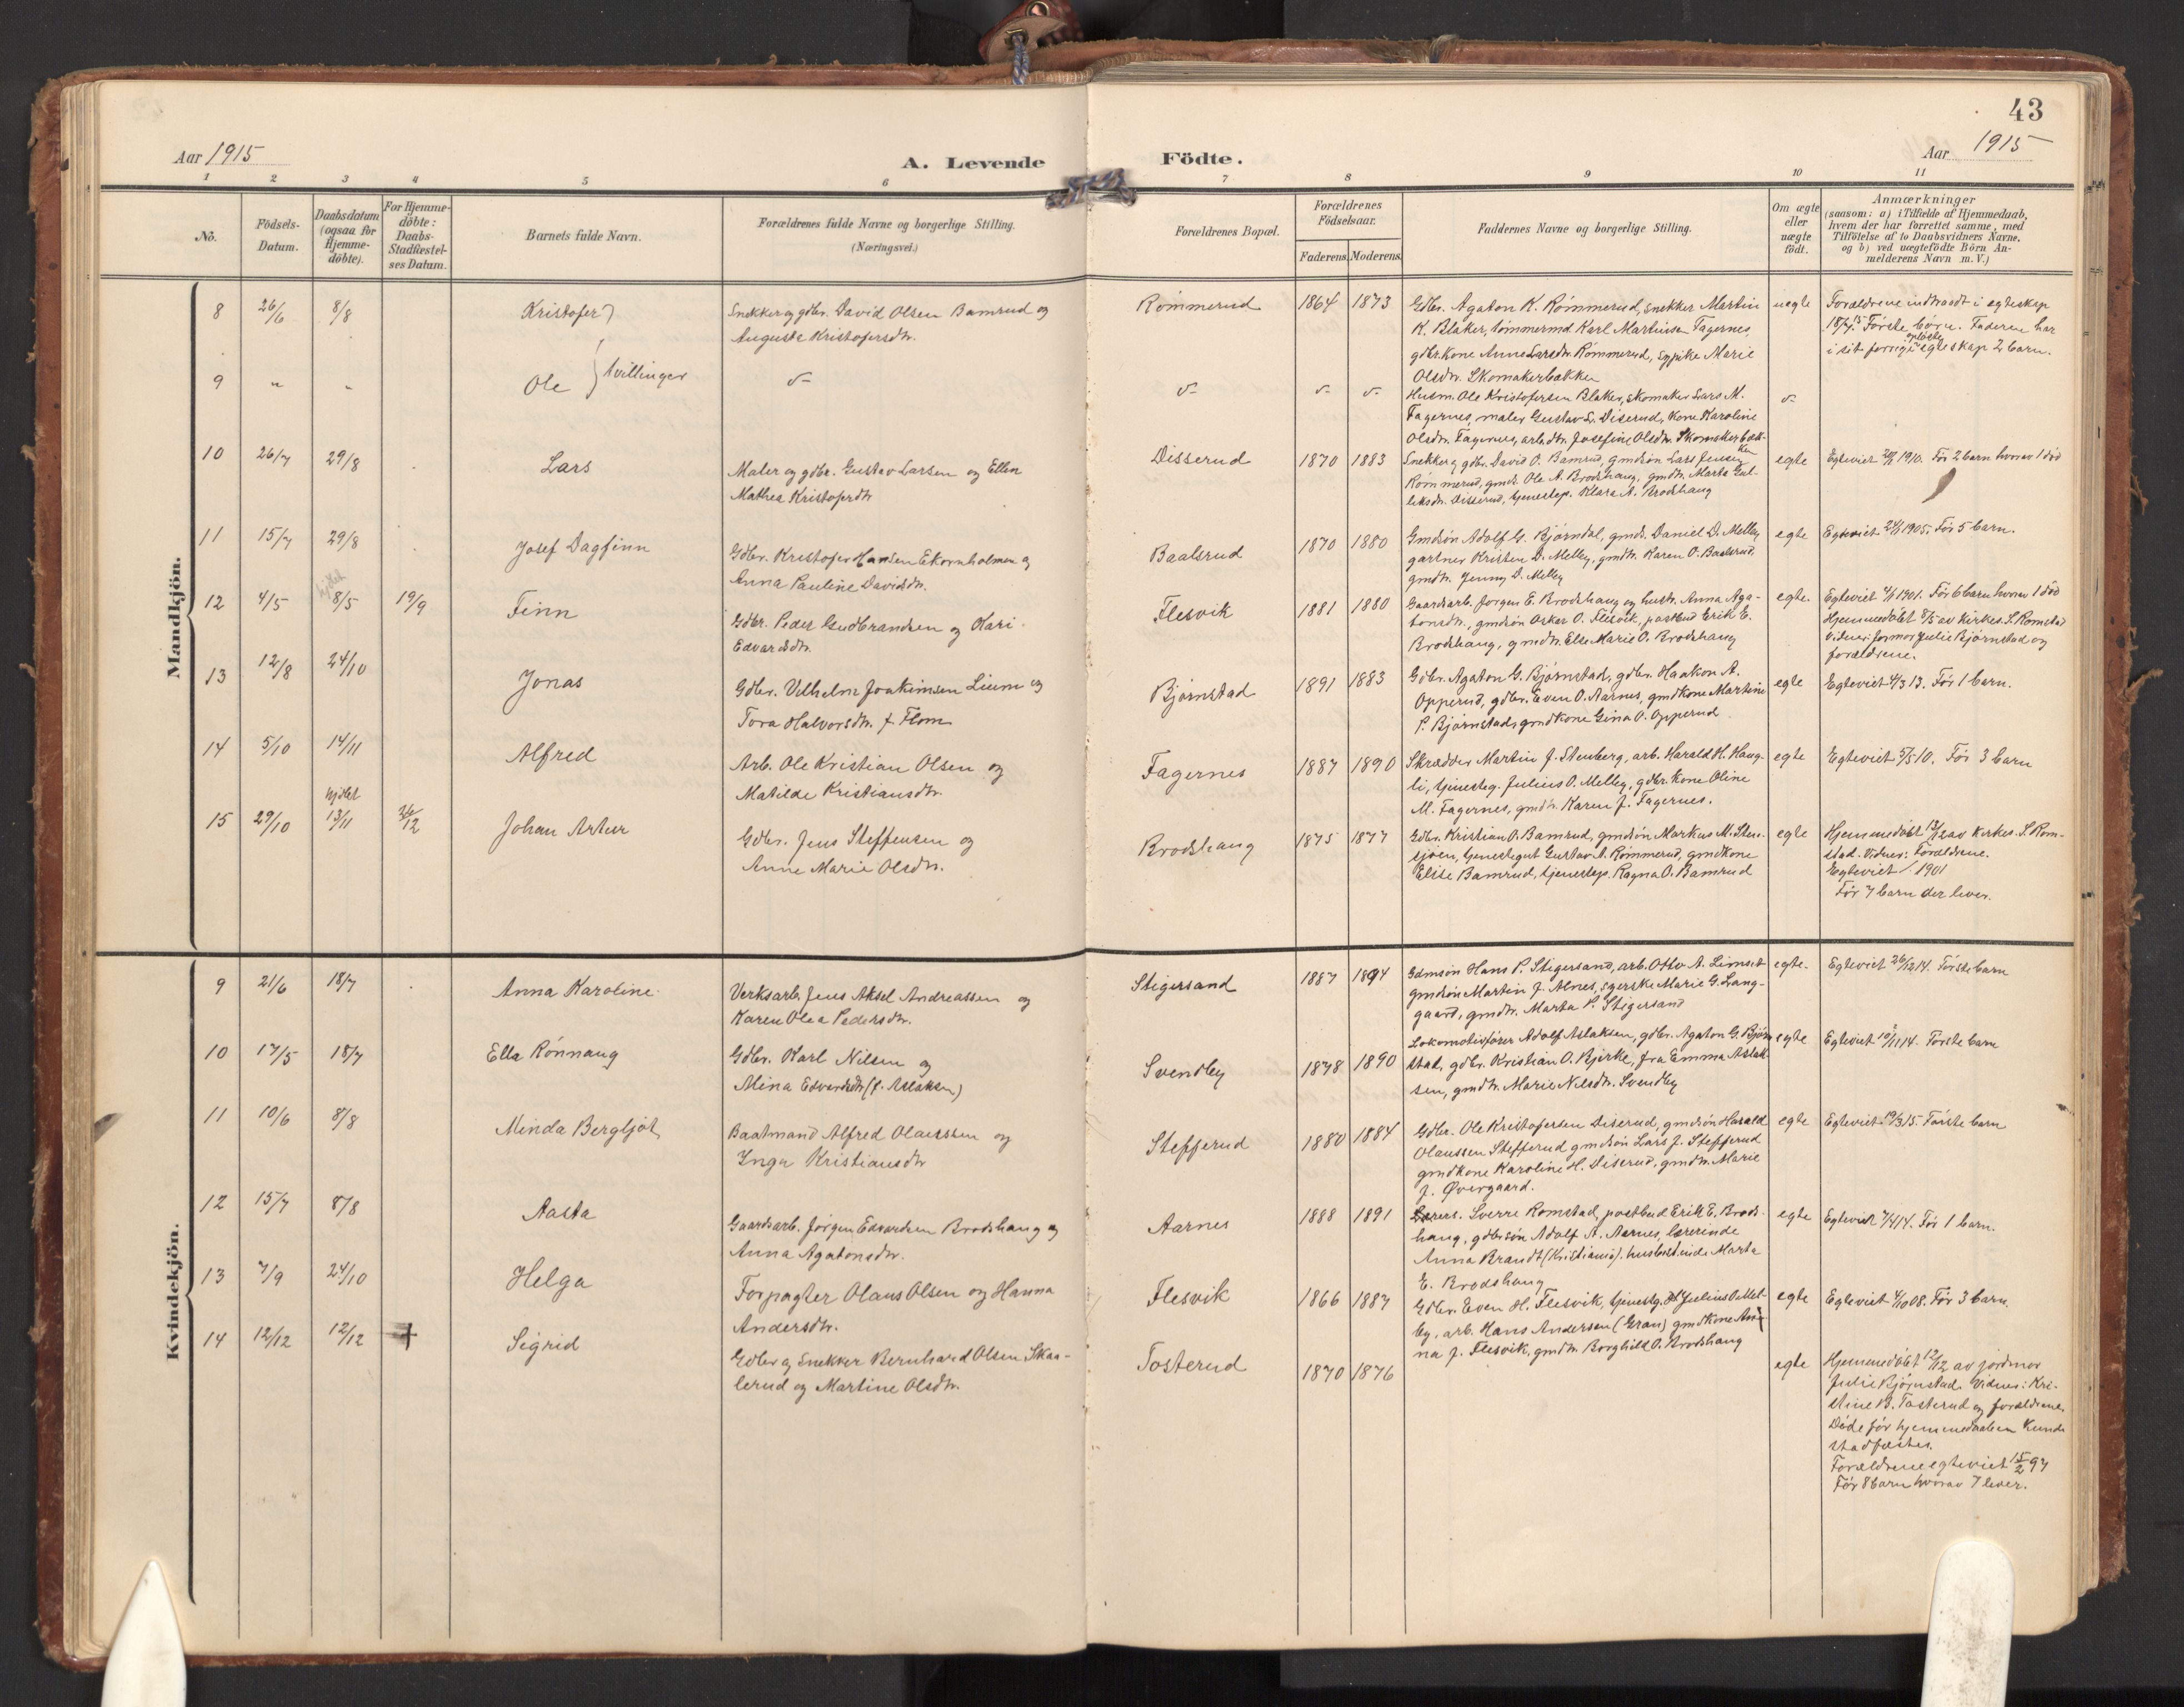 43
Aar 1915
A. Levende Födte.
Aar 1915
1 2 3 4 5 6 7 8 9 10 11
No.
Födsels-
Datum.
Daabsdatum
(ogsaa for
Hjemme-
döbte).
For Hjemme-
döbte:
Daabs-
Stadfæstel-
ses Datum.
Barnets fulde Navn.
Forældrenes fulde Navne og borgerlige Stilling.
(Næringsvei.)
Forældrenes Bopæl.
Forældrenes
Födselsaar.
Faderens. Moderens.
Faddernes Navne og borgerlige Stilling.
Om ægte
eller
uægte
födt.
Anmærkninger
(saasom: a) i Tilfælde af Hjemmedaab,
hvem der har forrettet samme, med
Tilföielse af to Daabsvidners Navne,
og b) ved uægtefödte Börn An-
melderens Navn m. V.)
Mandkjön.
8 26/6 8/8 Kristofer
Snekker og gdbr. David Olsen Bamrud og
Auguste Kristofersdtr.
Rømmerud 1864 1873
Gdbr. Agaton K. Rømmerud, snekker Martin
K. Blaker, tømmermd Karl Martinsen Fagernes,
gdbr.kone Anne Larsdtr. Rømmerud, sypike Marie
Olsdtr. Skomakerbakken
uegte
Forældrene indtraadt i egteskap
18/7 15. Første børn. Faderen har
i sit forrige opløste egteskap 2 barn.
9 " " Ole } tvillinger
Husm. Ole Kristofersen Blaker, skomaker Lars M.
Fagernes, maler Gustav L. Diserud, kone Karoline
Olsdtr. Fagernes, arb.dtr. Josefine Olsdtr. Skomakerbakken
10 26/7 29/8 Lars
Maler og gdbr. Gustav Larsen og Ellen
Mathea Kristoferdtr
Disserud 1870 1883
Snekker og gdbr. David O. Bamrud, gmdsøn Lars Jensen
Rømmerud, gmds. Ole A. Brodshaug, gmdtr. Marta Gul-
liksdtr. Disserud, tjenestep. Klara A. Brodshaug
egte
Egteviet 1910. Før 2 barn hvorav 1 død
11 15/7 29/8 Josef Dagfinn
Gdbr. Kristofer Hansen Ekornholmen og
Anna Pauline Davidsdtr.
Baalsrud 1870 1880
Gmdsøn Adolf G. Bjørndal, gmds. Daniel D. Melby
gartner Kristen D. Melby, gmdtr. Karen O. Baalsrud,
gmdtr. Jenny D. Melby
egte
Egteviet 1905. Før 5 barn.
12 4/5 hjdbt 8/5 19/9 Finn
Gdbr. Peder Gudbrandsen og Kari
Edvardsdtr.
Flesvik 1881 1880
Gaardsarb. Jørgen E. Brodshaug og hustr. Anna Aga-
tonsdtr., gmdsøn Oskar O. Flesvik, postbud Erik E.
Brodshaug, gmdtr. Elle Marie O. Brodshaug
egte.
Egteviet 1901. Før 6 barn hvorav 1 død
Hjemmedøbt 8/5 av kirkes. S. Romstad
Vidner: jormor Julie Bjørnstad og
forældrene.
13 12/8 24/10 Jonas
Gdbr. Vilhelm Joakimsen Lium og
Tora Halvorsdtr. f. Flom
Bjørnstad 1891 1883
Gdbr. Agaton G. Bjørnstad, gdbr. Haakon A.
Opperud, gdbr. Even O. Aarnes, gmdkone Martine
P. Bjørnstad, gmdkone Gina O. Opperud
egte
Egteviet 4/3 13. Før 1 barn.
14 5/10 14/11 Alfred
Arb. Ole Kristian Olsen og
Matilde Kristiansdtr.
Fagernes 1887 1890
Skrædder Martin J. Stenberg, arb. Harald H. Haug-
li, tjenesteg. Julius O. Melby, gdbr.kone Oline
M. Fagernes, gmdtr. Karen J. Fagernes.
egte
Egteviet 5/5 10. Før 3 barn
15 29/10 hjdbt 13/11 26/12 Johan Artur
Gdbr. Jens Steffensen og
Anne Marie Olsdtr.
Brodshaug 1875 1877
Gdbr. Kristian O. Bamrud, gmdsøn Markus M. Sten-
sjøen, tjenestegut Gustav A. Rømmerud, gmdkone
Elise Bamrud, tjenestep. Ragna O. Bamrud
egte
Hjemmedøbt 13/12 av kirkes. S. Rom-
stad. Vidner: Forældrene.
Egteviet / 1901
Før 7 barn der lever.
Kvindekjön.
9 21/6 18/7 Anna Karoline
Verksarb. Jens Aksel Andreassen og
Karen Olea Pedersdtr.
Stigersand 1887 1894
Gdmsøn Hans P. Stigersand, arb. Otto A. Limset
gmdsøn Martin J. Alnes, syerske Marie G. Lang-
gaard, gmdtr. Marta P. Stigersand
egte.
Egteviet 26/12 14. Første barn
10 17/5 18/7 Ella Rønnaug
Gdbr. Karl Nilsen og
Mina Edvardsdtr (f. Aslaksen)
Svendby 1878 1890
Lokomotivfører Adolf Aslaksen, gdbr. Agaton G. Bjørn-
stad, gdbr. Kristian O. Bjerke, fru Emma Aslak-
sen, gmdtr. Marie Nilsdtr. Svendby
egte
Egteviet 10/11 14. Første barn
11 10/6 8/8 Minda Bergljot
Baatmand Alfred Olaussen og
Inga Kristiansdtr
Stefferud 1880 1884
Gdbr. Ole Kristofersen Diserud, gmdsøn Harald
Olaussen Stefferud gmdsøn Lars J. Stefferud
gmdkone Karoline H. Diserud, gmdtr. Marie
J. Øvergaard.
egte
Egteviet 19/3 15. Første barn
12 15/7 8/8 Aasta
Gaardsarb. Jørgen Edvardsen Brodshaug og
Anna Agatonsdtr.
Aarnes 1888 1891
Sverre Romstad, postbud Erik E. Brods-
haug, gdbrsøn Adolf A. Aarnes, lærerinde
Anna Brandt (Kristiania). husbestinde Marta
E. Brodshaug
egte
Egteviet 7/4 14. Før 1 barn.
13 7/9 24/10 Helga
Forpagter Olaus Olsen og Hanna
Andersdtr.
Flesvik 1866 1887
Gdbr. Even H. Flesvik, tjenestg. Julius O. Mel-
by, arb. Hans Andersen (Gran) gmdkone An-
na J. Flesvik, gmdtr. Borghild O. Brodshaug
egte
Egteviet 4/10 08. Før 3 barn.
14 12/12 12/12 + Sigrid
Gdbr og Snekker Bernhard Olsen Skaa-
lerud og Martine Olsdtr.
Tosterud 1870 1876
egte
Hjemmedøbt 12/12 av jordmor
Julie Bjørnstad. Vidner: Kri-
stine B. Tosterud og forældrene.
Døde før hjemmedaaben kunde
stadfæstes.
Forældrene egteviet 15/2 97
Før 8 barn hvorav 7 lever.